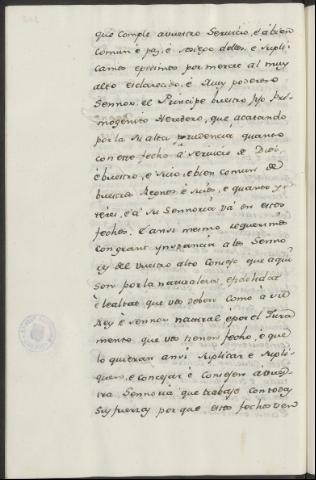 que comple avuestro Servicio, é albien
comun é paz, é sosiego dellos, é supli-
camos épedimos por merced al muy
alto esclarecido, é Muy poderoso
Sennor, el Principe vuestro fijo Pri-
mogenito Heredero, que acatando
por la Su alta prudencia quanto
con este fecho á servicio de Dios,
é vuestro, é suio, é bien comun de
buestros Regnos é suios, e quanto yn-
teres, é á Su Sennoria vá en estos
fechos. é ansi mesmo requerimos
con grant ynstancia alos Senno
res del vuestro alto Consejo que aqui
son por la naturaleza, é fidelidad
é lealtad que vos deben como á su
Rey é sennor natural é por el Jura
mento que vos tienen fecho, é que
lo quieran ansi suplicar é supli-
quen, e consejar é Consejen á vues-
tra Sennoria que trabaje contodas
sus fuerzas por que estos fechos ven